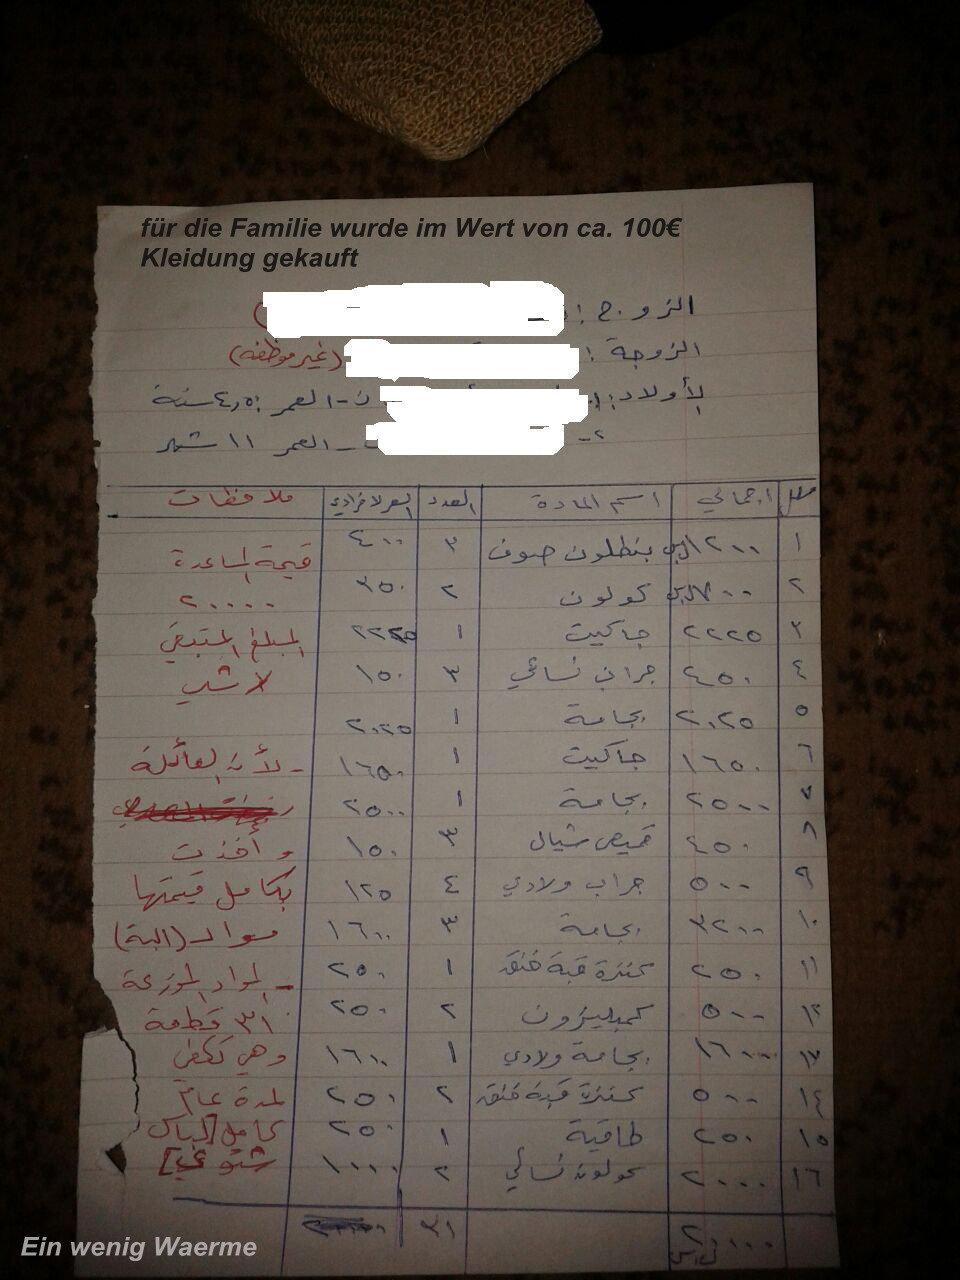 für die Familie wurde im Wert von ca. 100€
Kleidung gekauft
الزوج :
الزوجة : (غير موظفه)
الأولاد: - العمر ٤,٥ سنة
٢- - العمر ١١ شهر
اجمالي اسم المادة العدد السعر الافرادي ملاحظات
١ ١٢٠٠ بنطلون صوف ٣ ٤٠٠ قيمة المساعدة
٢ كولون ٢ ٣٥٠ ٢٠٠٠٠
٣ ٢٢٢٥ جاكيت ١ ٢٢٢٥ المبلغ المتبقي
٤ ٤٥٠ جراب نسائي ٣ ١٥٠ لا شيء
٥ ٢٠٢٥ بجامة ١ ٢٠٢٥
٦ ١٦٥٠ جاكيت ١ ١٦٥٠ - لأن العائلة
٧ ٢٥٠٠ بجامة ١ ٢٥٠٠
٨ ٤٥٠ قميص شيال ٣ ١٥٠ و أخذت
٩ ٥٠٠ جراب ولادي ٤ ١٢٥ بكامل قيمتها
١٠ ٣٢٠٠ بجامة ٣ ١٦٠٠ مواد (البة)
١١ ٢٥٠ كنزة قبة خنق ١ ٢٥٠ - المواد الموزعة
١٢ ٥٠٠ كمبليزون ٢ ٢٥٠ ٣١ قطعة
١٣ ١٦٠٠ بجامة ولادي ١ ١٦٠٠ وهي تكفي
١٤ ٥٠٠ كنزة قبة خنق ٢ ٢٥٠ لمدة عام
١٥ ٢٥٠ طاقية ١ ٢٥٠ كامل [لباس
١٦ ٢٠٠٠ كولون نسائي ٢ ١٠٠٠ شتوي]
٢٠٠٠٠ ٣١
Ein wenig Waerme